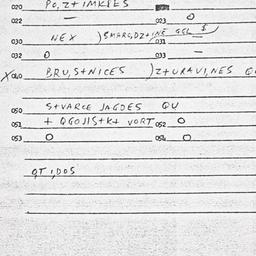 020 PO,Z+IMKBES
022 — 023 O
030 NEX )SMARG,DZ+,NE GGL $ 031
032 O 033 —
X040 BRU,S+NICES )Z+URAVI,NES
050 S+VARCE JAGDES QU
051 + QGOJIS+K+ VORT 052 O
053 O 054 O
QTIDOS